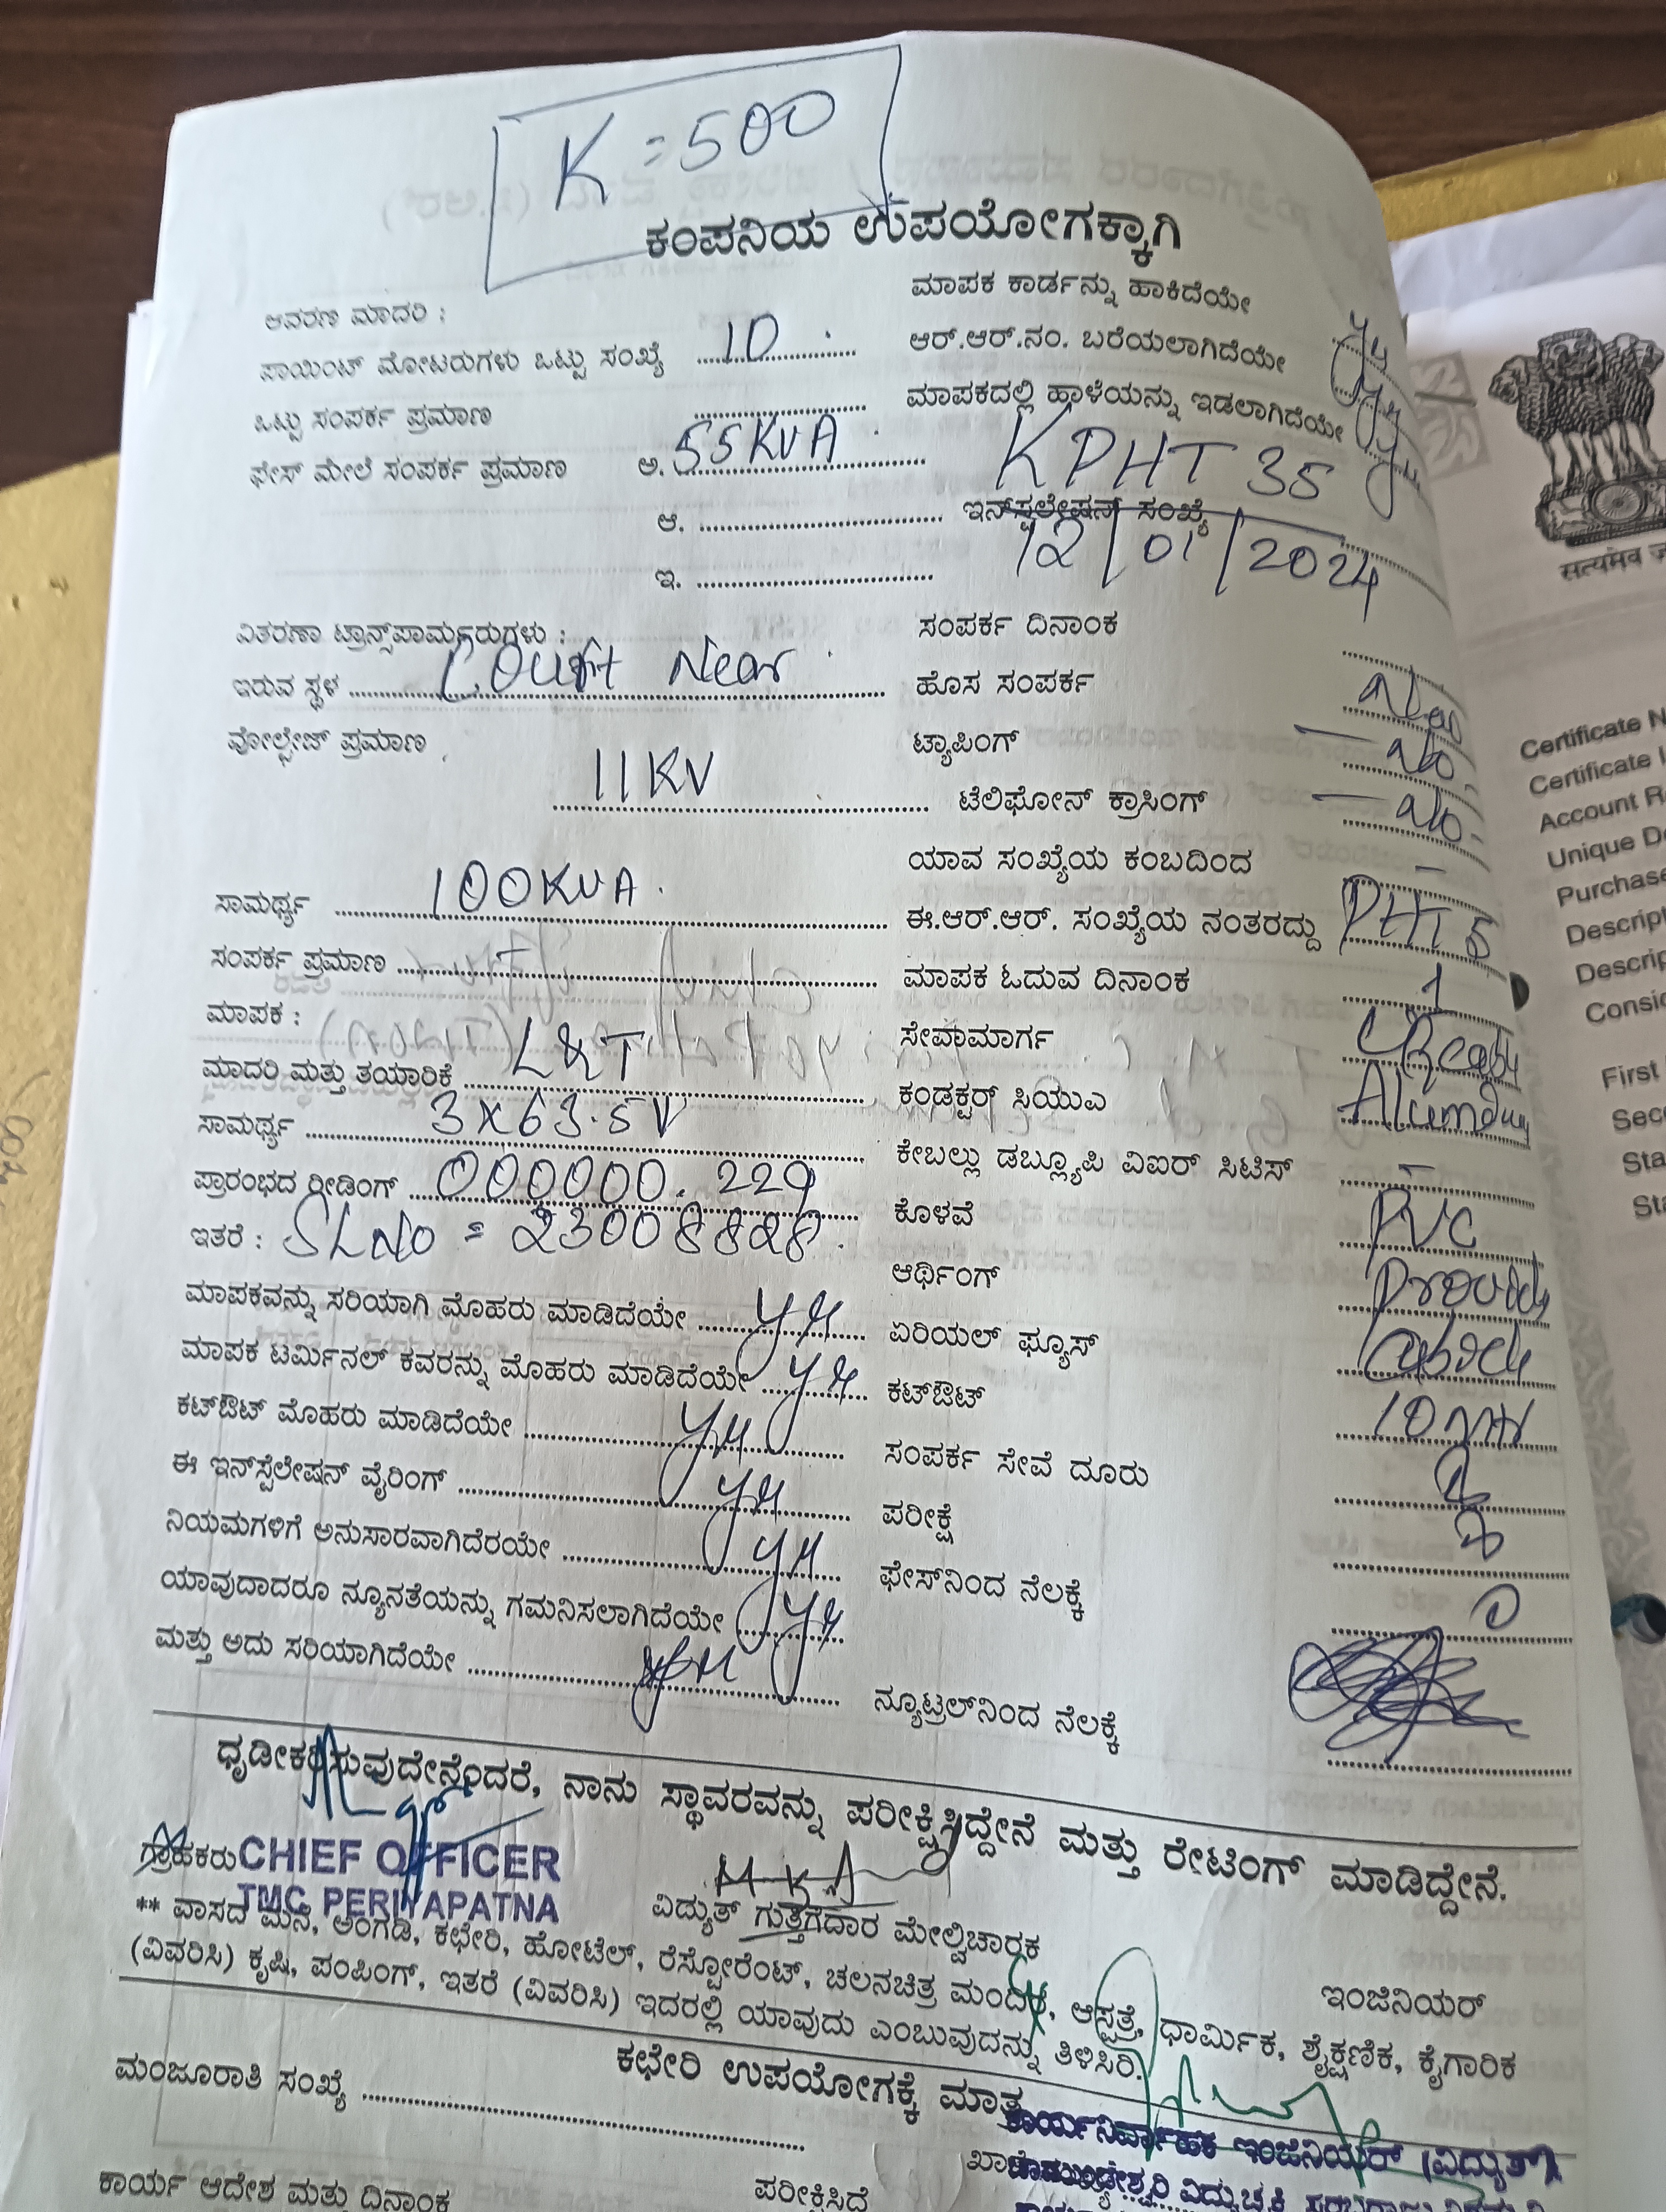 K = 500
ಕಂಪನಿಯ ಉಪಯೋಗಕ್ಕಾಗಿ
ಆವರಣ ಮಾದರಿ :
ಪಾಯಿಂಟ್ ಮೋಟರುಗಳು ಒಟ್ಟು ಸಂಖ್ಯೆ 10
ಒಟ್ಟು ಸಂಪರ್ಕ ಪ್ರಮಾಣ
ಫೇಸ್ ಮೇಲೆ ಸಂಪರ್ಕ ಪ್ರಮಾಣ ಅ. 55 KVA
ಆ.
ಇ.
ವಿತರಣಾ ಟ್ರಾನ್ಸ್‌ಪಾರ್ಮರುಗಳು :
ಇರುವ ಸ್ಥಳ Court Near
ವೋಲ್ಟೇಜ್ ಪ್ರಮಾಣ 11KV
ಸಾಮರ್ಥ್ಯ 100KVA
ಸಂಪರ್ಕ ಪ್ರಮಾಣ
ಮಾಪಕ :
ಮಾದರಿ ಮತ್ತು ತಯಾರಿಕೆ L&T
ಸಾಮರ್ಥ್ಯ 3X63.5V
ಪ್ರಾರಂಭದ ರೀಡಿಂಗ್ 000000.229
ಇತರೆ : SLNo = 23008828
ಮಾಪಕವನ್ನು ಸರಿಯಾಗಿ ಮೊಹರು ಮಾಡಿದೆಯೇ
ಮಾಪಕ ಟರ್ಮಿನಲ್ ಕವರನ್ನು ಮೊಹರು ಮಾಡಿದೆಯೇ
ಕಟ್‌ಔಟ್ ಮೊಹರು ಮಾಡಿದೆಯೇ
ಈ ಇನ್‌ಸ್ಪೆಲೇಷನ್ ವೈರಿಂಗ್
ನಿಯಮಗಳಿಗೆ ಅನುಸಾರವಾಗಿದೆರಯೇ
ಯಾವುದಾದರೂ ನ್ಯೂನತೆಯನ್ನು ಗಮನಿಸಲಾಗಿದೆಯೇ
ಮತ್ತು ಅದು ಸರಿಯಾಗಿದೆಯೇ
ಮಾಪಕ ಕಾರ್ಡನ್ನು ಹಾಕಿದೆಯೇ
ಆರ್.ಆರ್.ನಂ. ಬರೆಯಲಾಗಿದೆಯೇ
ಮಾಪಕದಲ್ಲಿ ಹಾಳೆಯನ್ನು ಇಡಲಾಗಿದೆಯೇ
KPHT 35
ಇನ್‌ಸ್ಪಲೇಷನ್ ಸಂಖ್ಯೆ
12/01/2024
ಸಂಪರ್ಕ ದಿನಾಂಕ
ಹೊಸ ಸಂಪರ್ಕ New
ಟ್ಯಾಪಿಂಗ್ No
ಟೆಲಿಫೋನ್ ಕ್ರಾಸಿಂಗ್ No
ಯಾವ ಸಂಖ್ಯೆಯ ಕಂಬದಿಂದ -
ಈ.ಆರ್.ಆರ್. ಸಂಖ್ಯೆಯ ನಂತರದ್ದು PHT 5
ಮಾಪಕ ಓದುವ ದಿನಾಂಕ 1
ಸೇವಾಮಾರ್ಗ
ಕಂಡಕ್ಟರ್ ಸಿಯುಎ
ಕೇಬಲ್ಲು ಡಬ್ಲ್ಯೂಪಿ ವಿಐರ್ ಸಿಟಿಸ್ -
ಕೊಳವೆ PVC
ಆರ್ಥಿಂಗ್
ಏರಿಯಲ್ ಫ್ಯೂಸ್
ಕಟ್‌ಔಟ್
ಸಂಪರ್ಕ ಸೇವೆ ದೂರು
ಪರೀಕ್ಷೆ
ಫೇಸ್‌ನಿಂದ ನೆಲಕ್ಕೆ
ನ್ಯೂಟ್ರಲ್‌ನಿಂದ ನೆಲಕ್ಕೆ
ಧೃಡೀಕರಿಸುವುದೇನೆಂದರೆ, ನಾನು ಸ್ಥಾವರವನ್ನು ಪರೀಕ್ಷಿಸಿದ್ದೇನೆ ಮತ್ತು ರೇಟಿಂಗ್ ಮಾಡಿದ್ದೇನೆ.
ಗ್ರಾಹಕರು CHIEF OFFICER
TMC PERIYAPATNA
ವಿದ್ಯುತ್ ಗುತ್ತಗೆದಾರ ಮೇಲ್ವಿಚಾರಕ
ಇಂಜಿನಿಯರ್
** ವಾಸದ ಮನೆ, ಅಂಗಡಿ, ಕಛೇರಿ, ಹೋಟೆಲ್, ರೆಸ್ಟೋರೆಂಟ್, ಚಲನಚಿತ್ರ ಮಂದಿರ, ಆಸ್ಪತ್ರೆ, ಧಾರ್ಮಿಕ, ಶೈಕ್ಷಣಿಕ, ಕೈಗಾರಿಕ
(ವಿವರಿಸಿ) ಕೃಷಿ, ಪಂಪಿಂಗ್, ಇತರೆ (ವಿವರಿಸಿ) ಇದರಲ್ಲಿ ಯಾವುದು ಎಂಬುವುದನ್ನು ತಿಳಿಸಿರಿ.
ಕಛೇರಿ ಉಪಯೋಗಕ್ಕೆ ಮಾತ್ರ
ಮಂಜೂರಾತಿ ಸಂಖ್ಯೆ
ಕಾರ್ಯನಿರ್ವಾಹಕ ಇಂಜಿನಿಯರ್ (ವಿದ್ಯುತ್)
ಕಾರ್ಯ ಆದೇಶ ಮತ್ತು ದಿನಾಂಕ
ಪರೀಕ್ಷಿಸಿದೆ
सत्यमेव
Certificate N
Certificate I
Account R
Unique D
Purchase
Descript
Descrip
Consid
First
Seco
Sta
Sta